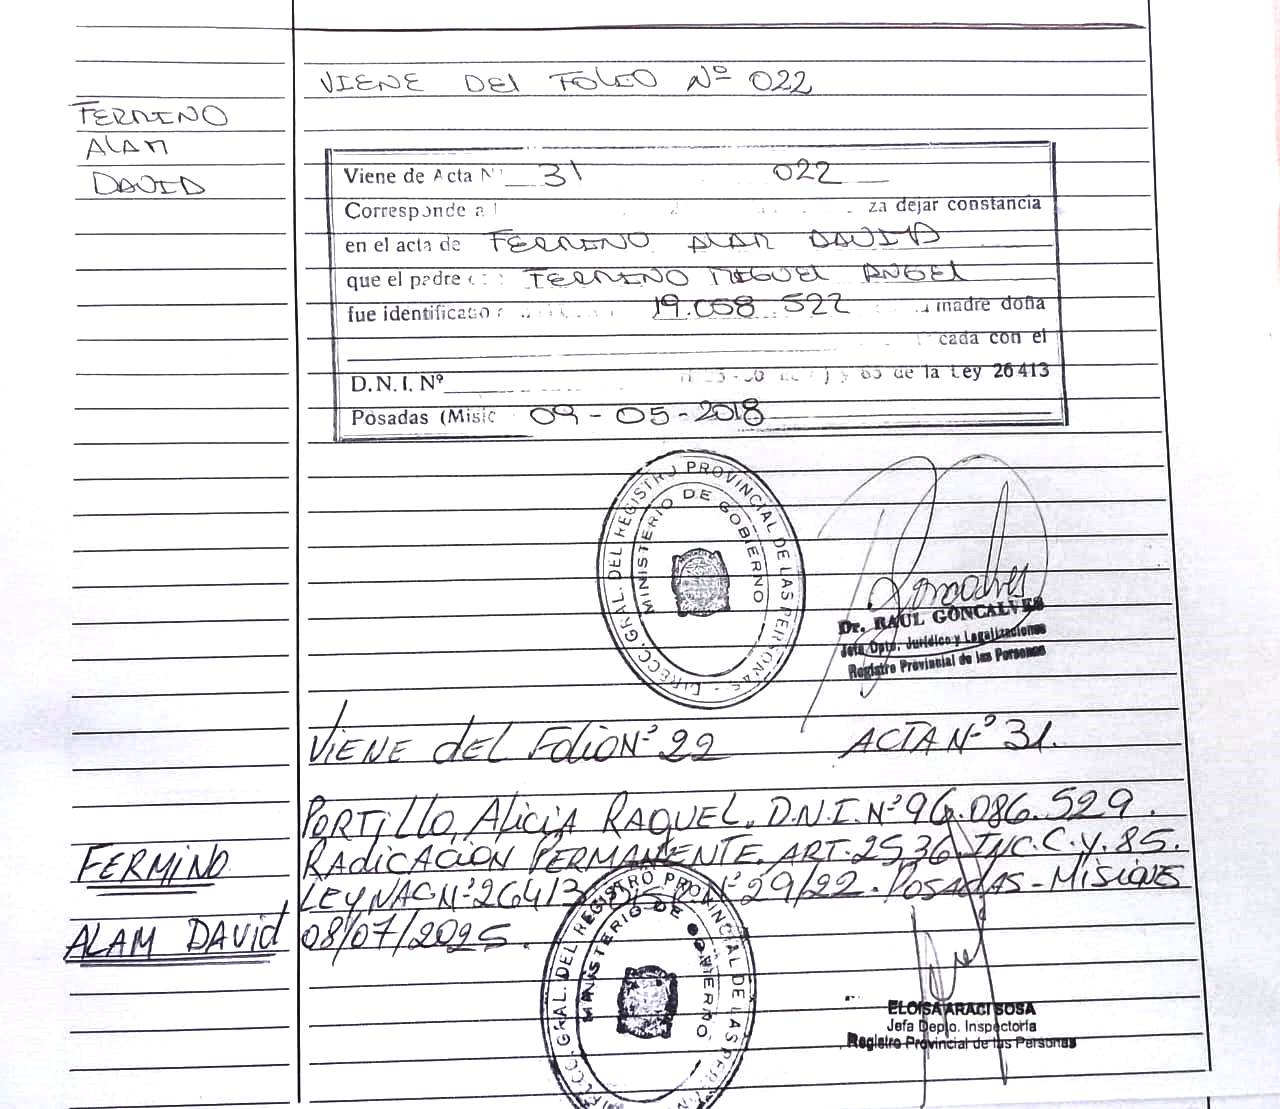 VIENE DEL FOLIO Nº 022
FERMINO
ALAM
DAVID
Viene de Acta N 31 022
Corresponde a za dejar constancia
en el acta de FERMINO ALAM DAVID
que el padre FERMINO MIGUEL ANGEL
fue identificado 19.058.522 madre doña
cada con el
D.N.I. Nº y 85 de la Ley 26413
Posadas (Misic 09-05-2018
DIRECC. GRAL. DEL REGISTRO PROVINCIAL DE LAS PERSONAS
MINISTERIO DE GOBIERNO
Dr. RAUL GONCALVES
Jefe Dpto. Jurídico y Legalizaciones
Registro Provincial de las Personas
VIENE dEL FOLIO Nº 22 ACTA Nº 31.
PORTILLO, ALICIA RAQUEL. D.N.I. Nº 96.086.529.
FERMINO RADICACIÓN PERMANENTE. ART. 25,36. INC. C. Y. 85.
LEY NAC Nº 26413 Nº 29/22. POSADAS - MISIONES
ALAM DAVID 08/07/2025.
DIRECC. GRAL. DEL REGISTRO PROVINCIAL DE LAS PERSON
MINISTERIO DE GOBIERNO
ELOISA ARACI SOSA
Jefa Depto. Inspectoría
Registro Provincial de las Personas